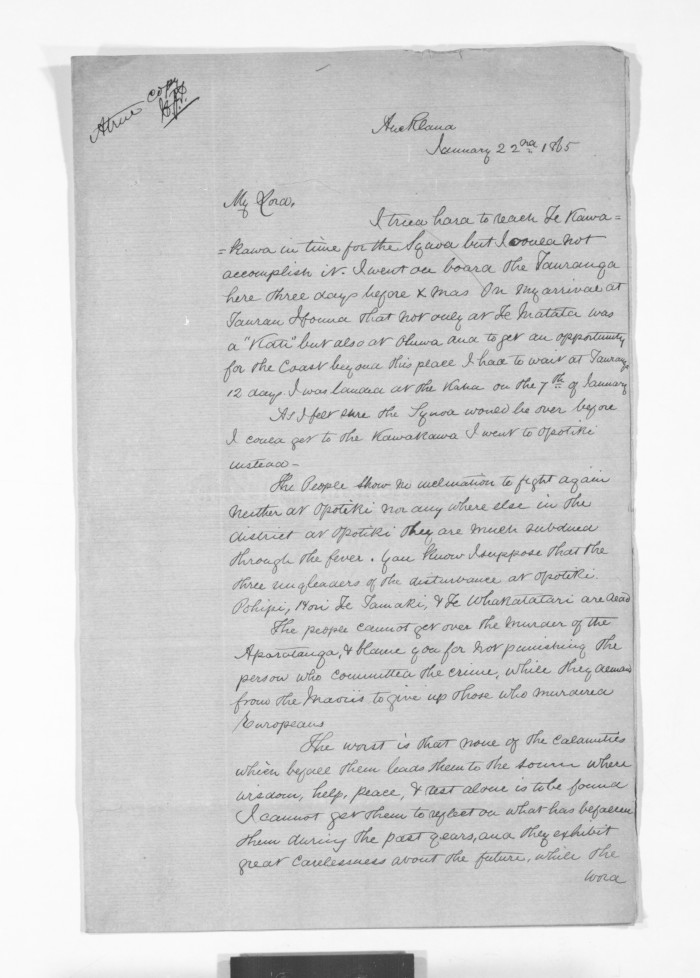 A true copy
Auckland
January 22nd 1865
My Lord,
I tried hard to reach Te Kawa=
=kawa in time for the Synod but I could not
accomplish it. I went on board the Tauranga
here three days before Xmas On my arrival at
Tauran I found that not only at Te Matata was
a "Kati" but also at Ohiwa and to get an opportunity
for the Coast beyond this place I had to wait at Taurang
12 days I was landed at the Kaha on the 7th of January
As I felt sure the Synod would be over before
I could get to the Kawakawa I went to Opotiki
instead -
The People show no inclination to fight again
neither at Opotiki nor any where else in the
district at Opotiki they are much subdued
through the fever. You know I suppose that the
three ringleaders of the disturbance at Opotiki.
Pohipi, Hori Te Tamaki, & Te Whakalatari are dead
The people cannot get over the murder of the
Aparatanga, & blame you for not punishing the
person who committed the crime, while they deman
from the Maoris to give up those who murdered
Europeans
The worst is that none of the calamities
which befall them leads them to the source where
wisdom, help, peace, & rest alone is to be found
I cannot get them to reflect on what has befallen
them during the past years, and they exhibit
great carelessness about the future, while the
word